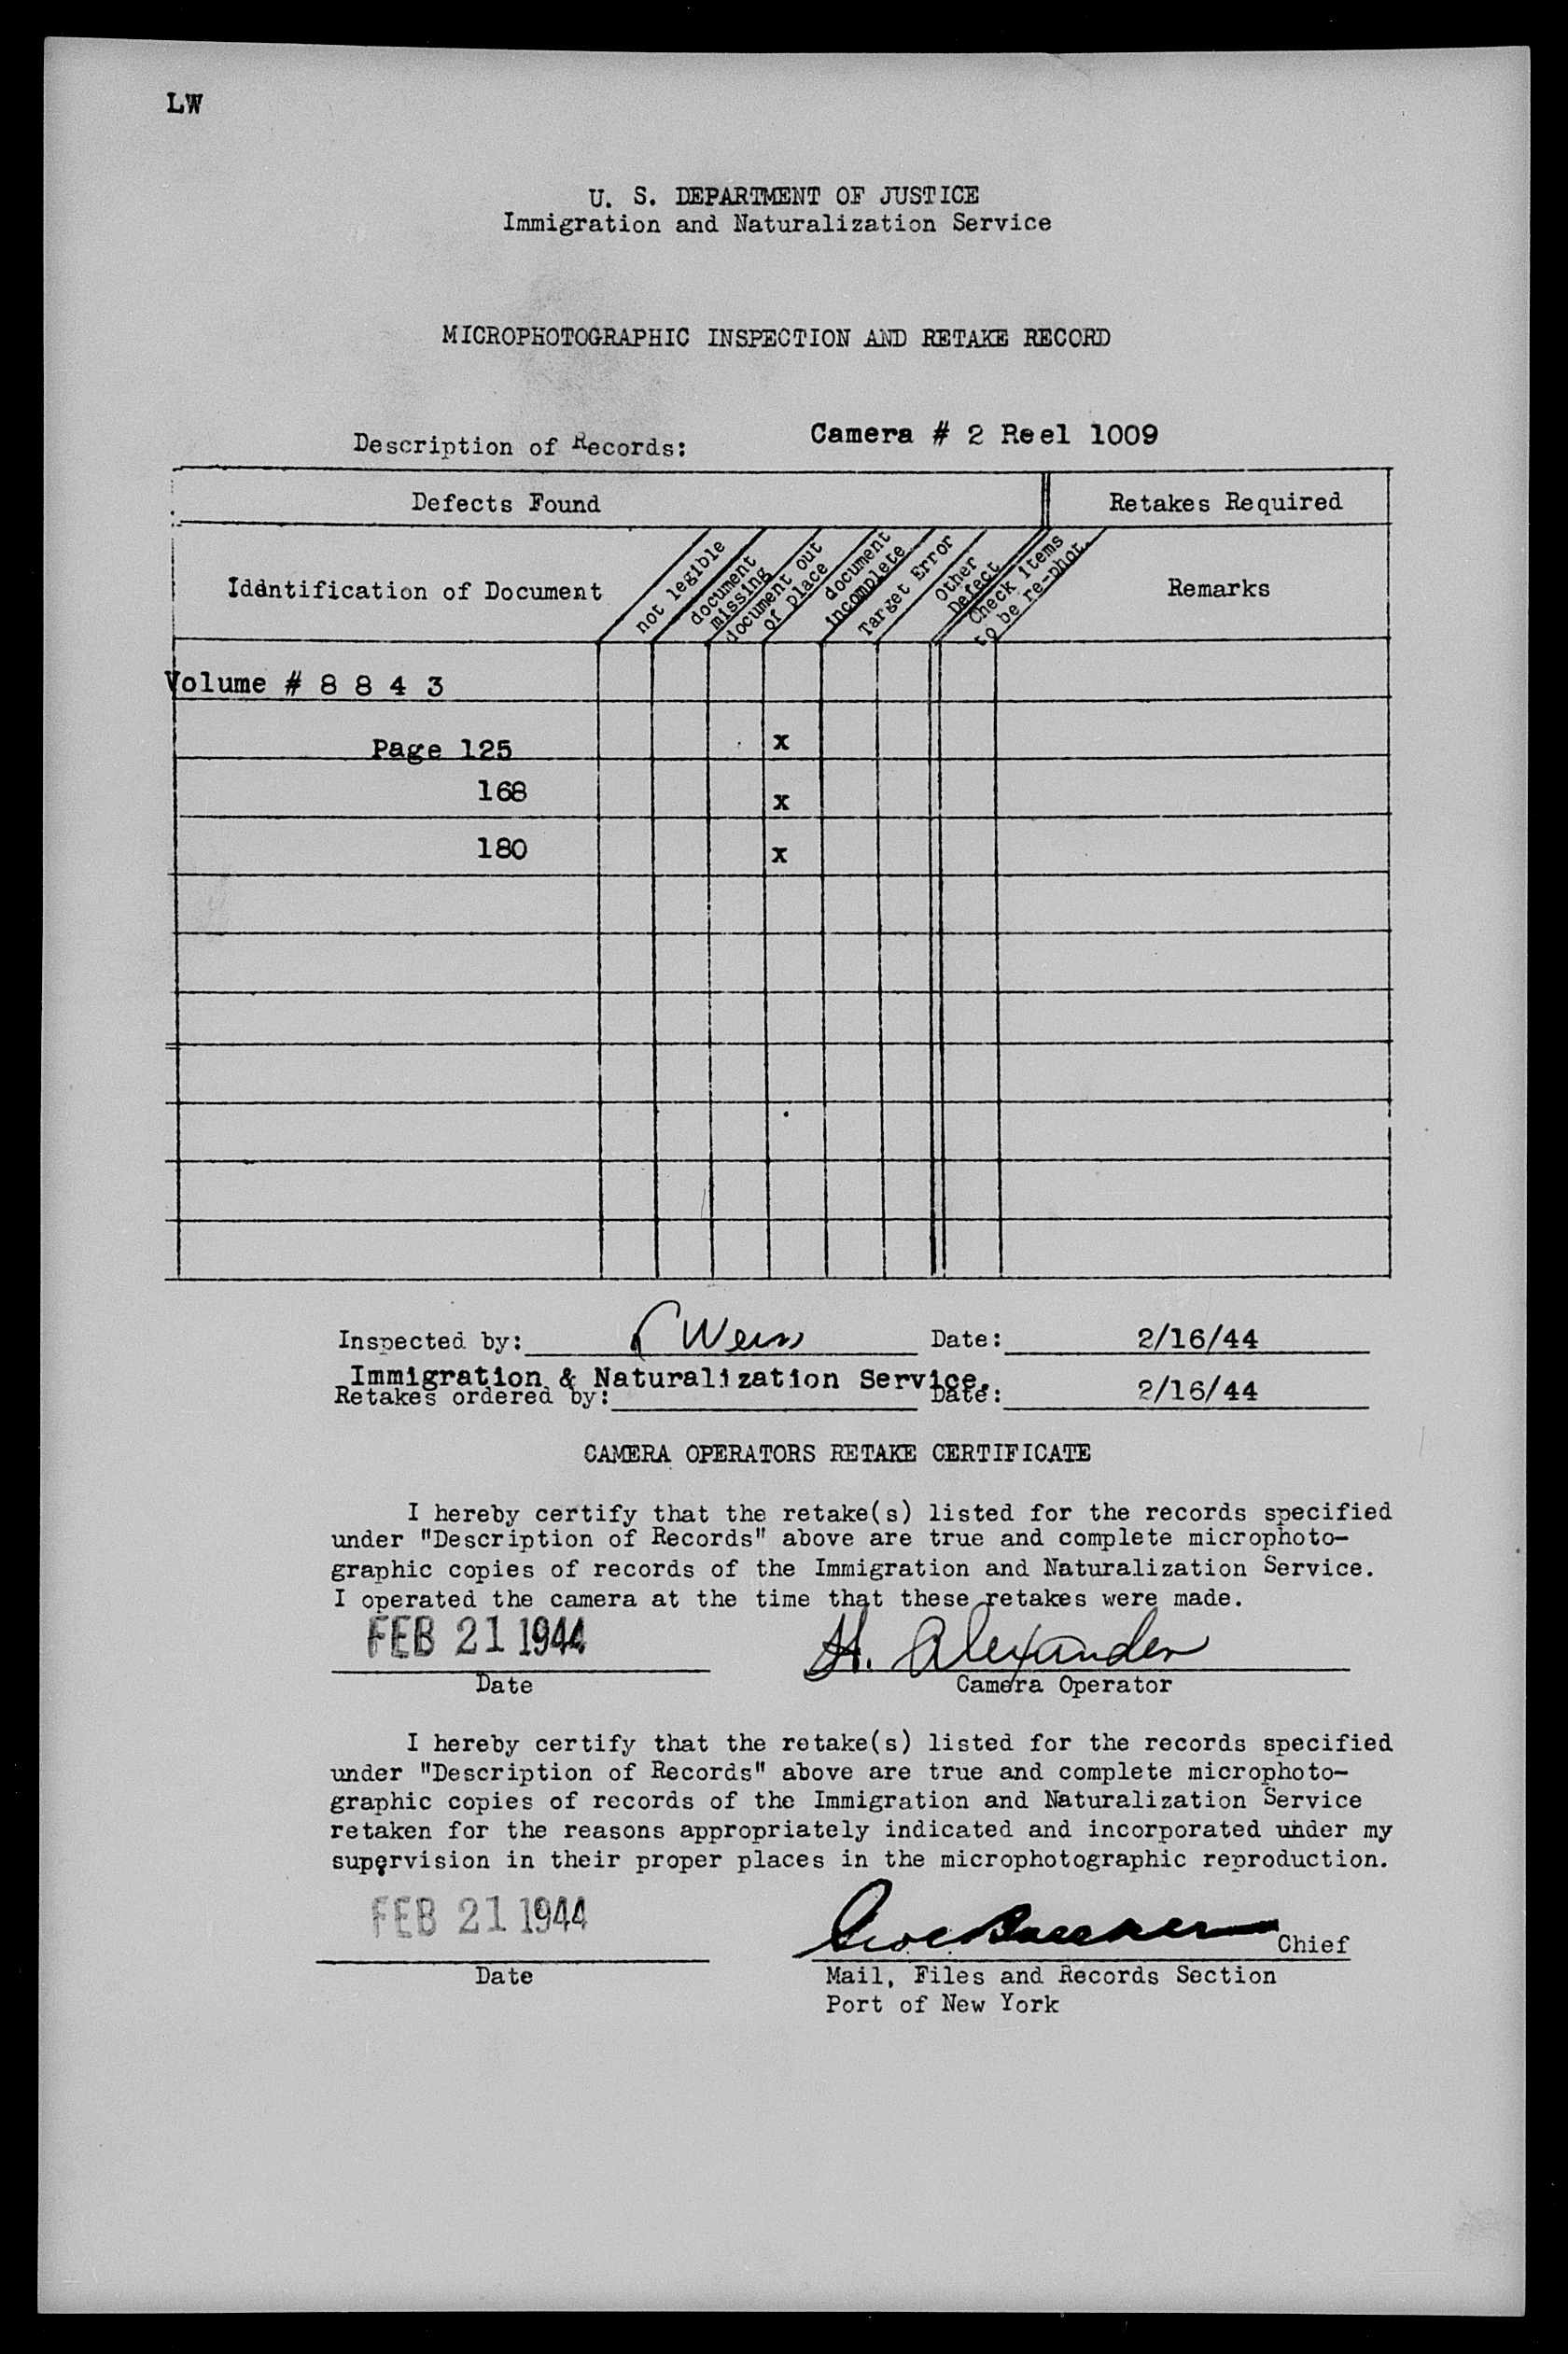 LW
U. S. DEPARTMENT OF JUSTICE
Immigration and Naturalization Service
MICROPHOTOGRAPHIC INSPECTION AND RETAKE RECORD
Description of Records: Camera # 2 Reel 1009
Defects Found Retakes Required
Idantification of Document
not legible
document missing
document out of place
document incomplete
Target Error
Other Defect
Check Items to be re-phot.
Remarks
Volume # 8 8 4 3
Page 125 x
168 x
180 x
Inspected by: Weiss Date: 2/16/44
Immigration & Naturalization Service.
Retakes ordered by: Date: 2/16/44
CAMERA OPERATORS RETAKE CERTIFICATE
I hereby certify that the retake(s) listed for the records specified
under "Description of Records" above are true and complete microphoto-
graphic copies of records of the Immigration and Naturalization Service.
I operated the camera at the time that these retakes were made.
FEB 21 1944 H. Alexander
Date Camera Operator
I hereby certify that the retake(s) listed for the records specified
under "Description of Records" above are true and complete microphoto-
graphic copies of records of the Immigration and Naturalization Service
retaken for the reasons appropriately indicated and incorporated under my
supervision in their proper places in the microphotographic reproduction.
FEB 21 1944 Chief
Date Mail, Files and Records Section
Port of New York